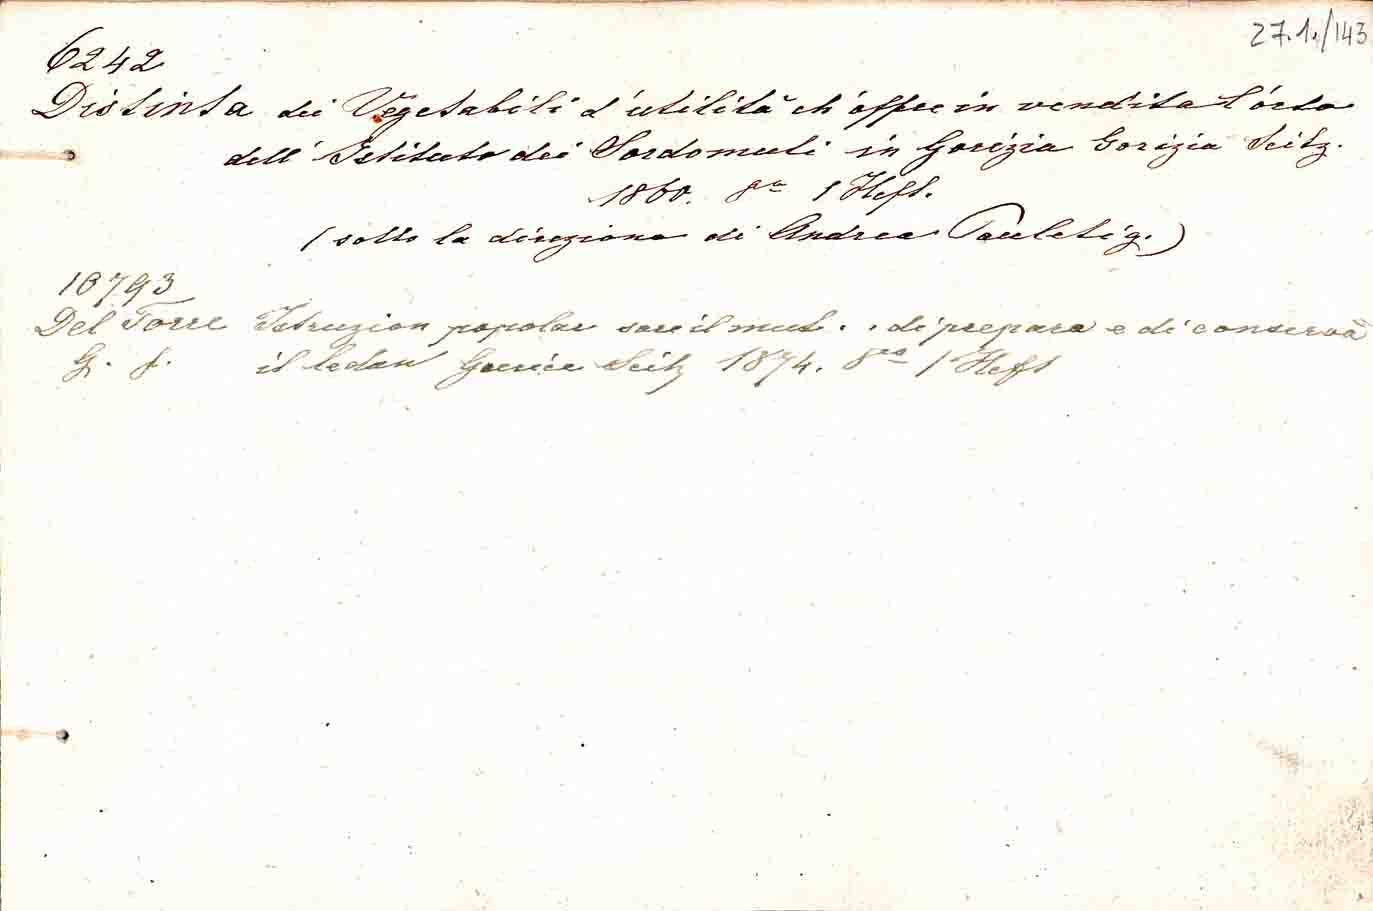 27.1./143
6242
Distinta dei Vegetabili d'utilità ch'offre in vendita l'orto
dell' Istituto dei Sordomuti in Gorizia Gorizia Seitz.
1860. 8va 1 Heft.
(sotto la direzione di Andrea Pauletig.)
10793
Del Torre Istruzion popolar sore il mut . . di prepara e di conservà
G. F. il ledan Gurize Seitz 1874. 8va 1 Heft